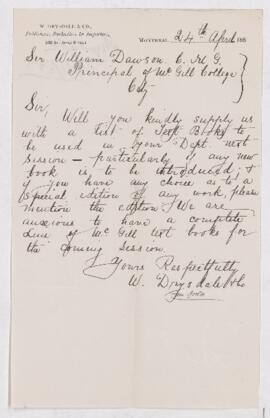 W. DRYSDALE & CO.
Publishers, Booksellers & Importers,
MONTREAL 24th April 188
Sir William Dawson C. M. G.
Principal of Mc Gill College
City
Sir, Will you kindly supply us
with a list of Text Books to
be used in your Dept. next
Session – particularly if any new
book is to be introduced; &
if you have any choice as to a
special edition of any work, please
mention the edition. We are
anxious to have a complete
Line of Mc Gill text books for
the coming Session.
Yours Respectfully
W. Drysdale & Co